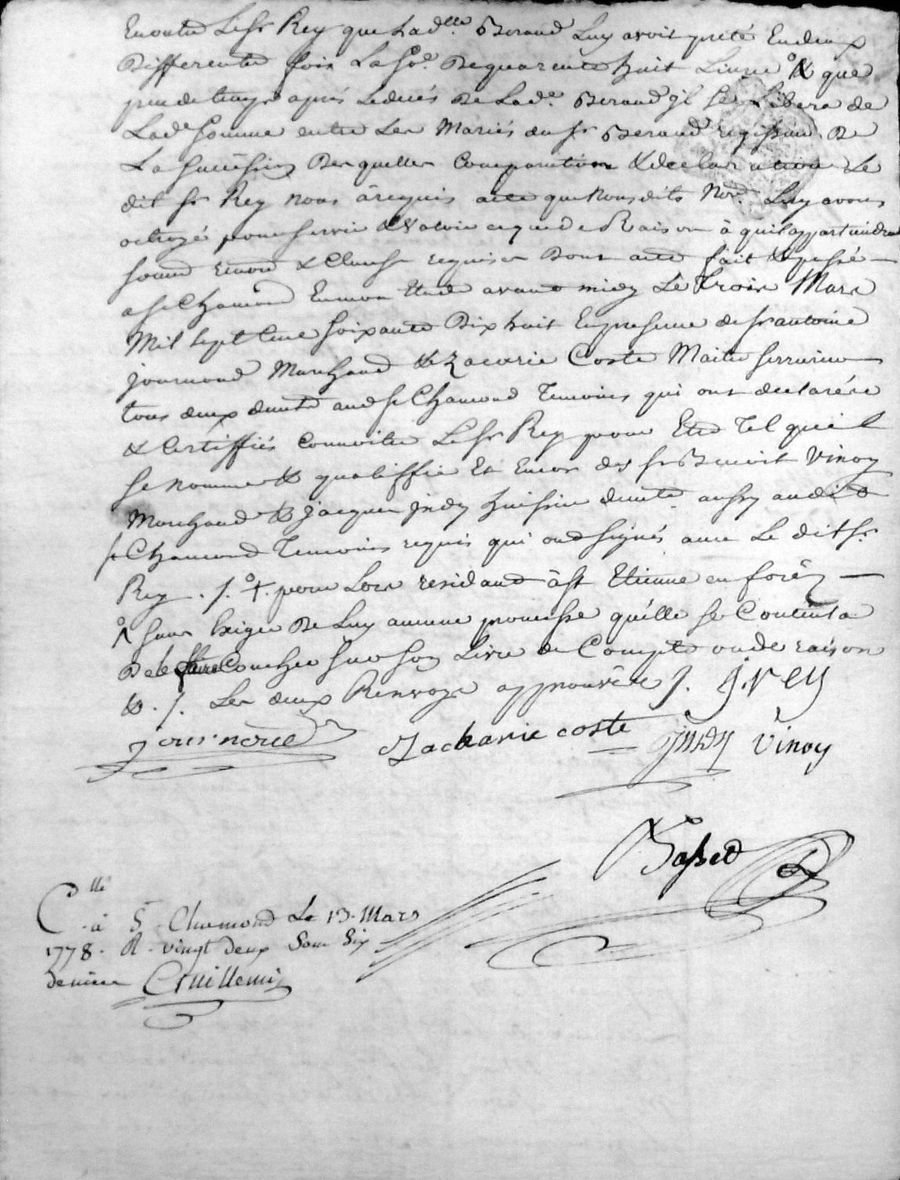 En outre Le Sr Rey que Lad.lle Beraud Luy avoit preté En deux
Differente fois La So.e De quarente huit Livres & que
peu de temps aprés Le decés De Lad.e Beraud jl Se Libera de
Lad.e Somme entre Les Maries du Sr Beraud De
La Des quelles Comparution & declaration Le
dit Sr Rey nous à requis acte que Nousdits No.re Luy avons
octroyé pour Servir & valoir ce que de Raison à quil appartiendra
Sound & Clause requises Dont acte fait & passé
a St Chamond En mon Etude avant midy Le Trois Mars
Mil Sept Cent Soixante Dix huit En presence de Sr antoine
journoud Marchand & Zacarie Coste Maitre Serrurier
tous deux dud St Chamond Temoins qui ont declaré
& Certiffiés Connoitre Le Sr Rey pour Etre Tel qu'il
Se nomme & qualiffie Et Encor des Sr Benoit Vinoy
Marchand & Jacques jndy huissier aussy audit
St Chamond Temoins requis qui ont Signés avec Le dit Sr
Rey ./. +. pour Lors residant à St Etienne en foréz
Sans Exiger De Luy aucune promesse qu'elle Se Contenta
De le faire Coucher Sur Son Livre de Compte ou de raison
&. /. Les deux Renvoys approuvés /. J. rey
journoud Zacharie coste jndy Vinoy
Basset
C.llé à St Chamond Le 13 Mars
1778. R. vingt deux Sous Six
deniers Guillemin